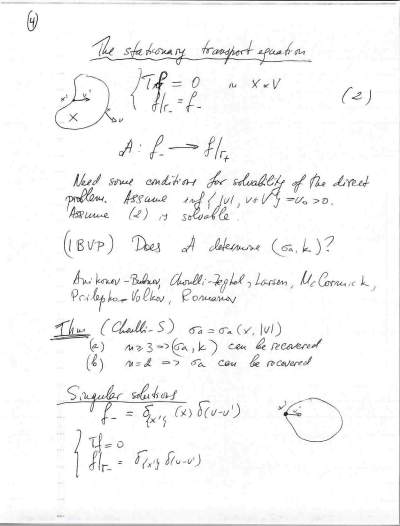 (4)
The stationary transport equation
Tf = 0 in X × V
f|Γ_ = f_
(2)
x' v'
X
v
A: f_ → f|Γ+
Need some conditions for solvability of the direct
problem. Assume inf{|v|, v∈V} = v₀ > 0.
Assume (2) is solvable.
(IBVP) Does A determine (σa, k)?
Anikonov-Bubnov, Choulli-Zeghal, Larsen, McCormick,
Prilepko-Volkov, Romanov
Thm (Choulli-S) σa = σa(x, |v|)
(a) n≥3 => (σa, k) can be recovered
(b) n=2 => σa can be recovered
Singular solutions
f_ = δ{x'}(x) δ(v-v')
Tf = 0
f|Γ_ = δ{x'} δ(v-v')